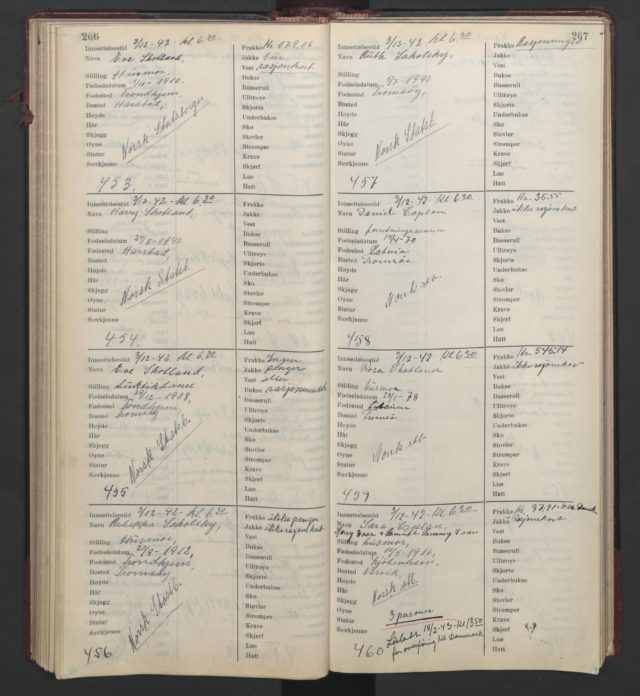 266
Innsettelsestid 3/12-42 kl 6.20
Navn Eve Skotland,
Stilling Husmor,
Fødselsdatum 1910,
Fødested Trondhjem,
Bosted Harstad,
Høyde
Hår
Skjegg
Øyne
Statur
Særkjenne
Norsk Statsborger
453.
Frakke Kr. 679,06
Jakke
Vest rasjonkort
Bukse
Busserull
Ulltrøye
Skjorte
Underbukse
Sko
Støvler
Strømper
Krave
Skjerf
Lue
Hatt
Innsettelsestid 3/12-42-kl 6.20
Navn Harry Skotland,
Stilling
Fødselsdatum 29/8-1940
Fødested Harstad,
Bosted
Høyde
Hår
Skjegg
Øyne
Statur
Særkjenne
Norsk Statsb.
454.
Frakke
Jakke
Vest
Bukse
Busserull
Ulltrøye
Skjorte
Underbukse
Sko
Støvler
Strømper
Krave
Skjerf
Lue
Hatt
Innsettelsestid 3/12-42 Kl 6.20
Navn Eve Skotland,
Stilling Butikkdame
Fødselsdatum /12-1908,
Fødested Trondhjem,
Bosted Tromsøy,
Høyde
Hår
Skjegg
Øyne
Statur
Særkjenne
Norsk Statsb.
455
Frakke Ingen
Jakke penger
Vest eller
Bukse rasjonkort
Busserull
Ulltrøye
Skjorte
Underbukse
Sko
Støvler
Strømper
Krave
Skjerf
Lue
Hatt
Innsettelsestid 3/12-42, kl 6.20
Navn Rebekka Sakolsky,
Stilling Husmor,
Fødselsdatum 22/9-1912,
Fødested Trondhjem,
Bosted Tromsøy,
Høyde
Hår
Skjegg
Øyne
Statur
Særkjenne
Norsk Statsb.
456
Frakke ikke penger
Jakke ikke rasjonkort
Vest
Bukse
Busserull
Ulltrøye
Skjorte
Underbukse
Sko
Støvler
Strømper
Krave
Skjerf
Lue
Hatt
267
Innsettelsestid 3/12-42 - kl 6.20
Navn Ruth Sakolsky,
Stilling
Fødselsdatum 9/7-1940
Fødested Tromsöy,
Bosted
Høyde
Hår
Skjegg
Øyne
Statur
Særkjenne
Norsk Statsb.
457
Frakke
Jakke
Vest
Bukse
Busserull
Ulltrøye
Skjorte
Underbukse
Sko
Støvler
Strømper
Krave
Skjerf
Lue
Hatt
Innsettelsestid 3/12-42-kl 6.20
Navn Daniel Caplan
Stilling forretningsmann
Fødselsdatum
Fødested Latvia
Bosted Tromsö
Høyde
Hår
Skjegg
Øyne
Statur
Særkjenne
Norsk stb.
458
Frakke Kr. 35.55
Jakke ikke rasjonkort
Vest
Bukse
Busserull
Ulltrøye
Skjorte
Underbukse
Sko
Støvler
Strømper
Krave
Skjerf
Lue
Hatt
Innsettelsestid 3/12-42-kl 6.20
Navn Rosa Shotland
Stilling Husmor
Fødselsdatum 28/1-78
Fødested
Bosted Tromsö
Høyde
Hår
Skjegg
Øyne
Statur
Særkjenne
Norsk stb.
459
Frakke Kr. 545.14
Jakke ikke rasjonkort
Vest
Bukse
Busserull
Ulltrøye
Skjorte
Underbukse
Sko
Støvler
Strømper
Krave
Skjerf
Lue
Hatt
Innsettelsestid 3/12-42-kl 6.20
Navn Sara Caplan,
Stilling Husmor,
Fødselsdatum /5-1916,
Fødested Kjöbenhavn,
Bosted Narvik,
Høyde
Hår
Skjegg
Øyne
Statur
Særkjenne
Norsk stb.
3 pasoner
Löslatt 18/2-43-kl 1350
for overföring til Danmark
460
Frakke Kr. 37.91
Jakke Rasjonkort
Vest
Bukse
Busserull
Ulltrøye
Skjorte
Underbukse
Sko
Støvler
Strømper
Krave
Skjerf
Lue
Hatt